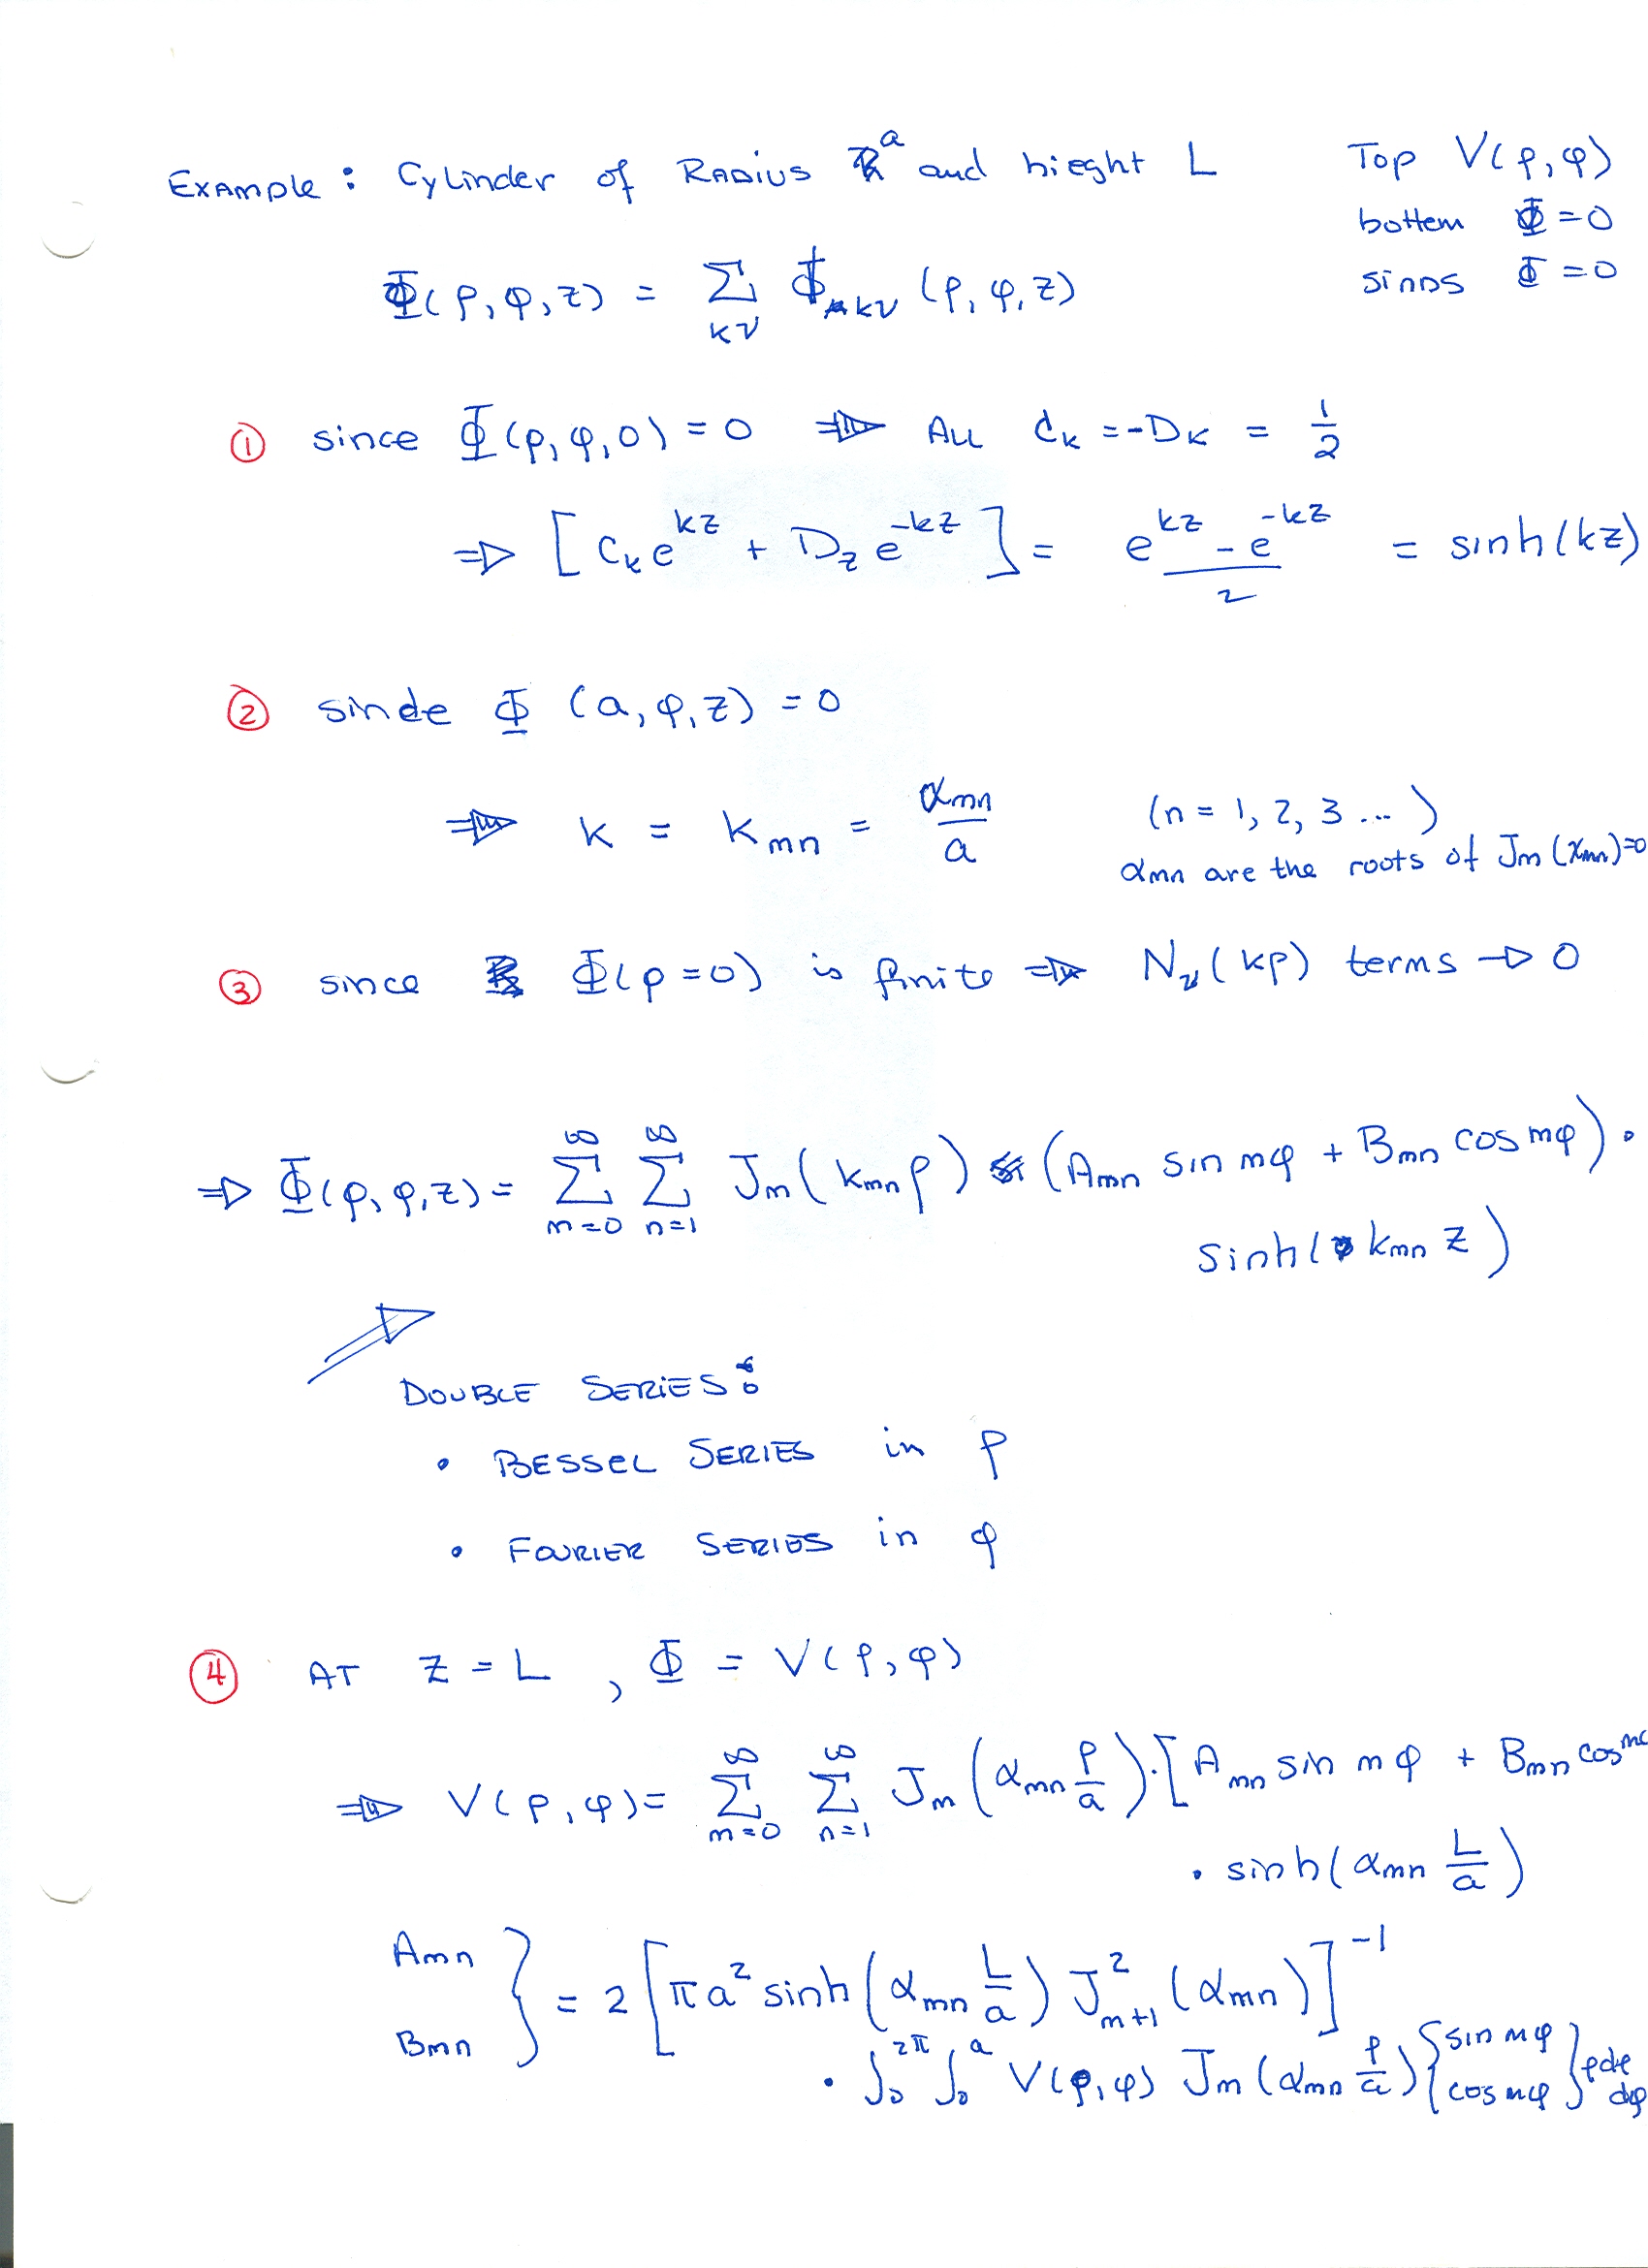 Example: Cylinder of Radius a and hieght L
Top V(ρ,φ)
bottem Φ=0
sinds Φ=0
Φ(ρ,φ,z) = Σ_{kν} Φ_{kν} (ρ,φ,z)
① since Φ(ρ,φ,0)=0 ⇒ All C_k = -D_k = 1/2
⇒ [C_k e^{kz} + D_z e^{-kz}] = (e^{kz} - e^{-kz})/2 = sinh(kz)
② sinde Φ (a,φ,z) = 0
⇒ k = k_{mn} = α_{mn}/a (n = 1, 2, 3 ...)
α_{mn} are the roots of J_m(x_{mn})=0
③ since Φ(ρ=0) is finite ⇒ N_ν(kρ) terms → 0
⇒ Φ(ρ,φ,z) = Σ_{m=0}^∞ Σ_{n=1}^∞ J_m(k_{mn}ρ) (A_{mn} sin mφ + B_{mn} cos mφ) ·
sinh(k_{mn} z)
⇒
Double Series:
• Bessel Series in ρ
• Fourier Series in φ
④ At z = L , Φ = V(ρ,φ)
⇒ V(ρ,φ) = Σ_{m=0}^∞ Σ_{n=1}^∞ J_m(α_{mn} ρ/a)·[A_{mn} sin mφ + B_{mn} cos m
· sinh(α_{mn} L/a)
A_{mn}
B_{mn} } = 2[πa² sinh(α_{mn} L/a) J²_{m+1}(α_{mn})]^{-1}
· ∫_0^{2π} ∫_0^a V(ρ,φ) J_m(α_{mn} ρ/a) {sin mφ
cos mφ} ρdρ dφ